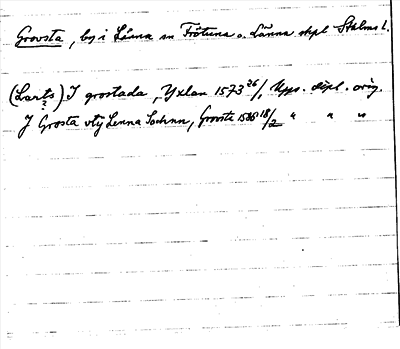 Grovsta, by i Länna sn Frötuna o. Länna skpl Sthlms l.
(Larts) I grostada, Yxlan 1573 26/1 Upps. dipl. orig.
?
J Grosta vtij Lenna Sochnn, Grovsta 1586 18/2 " " "